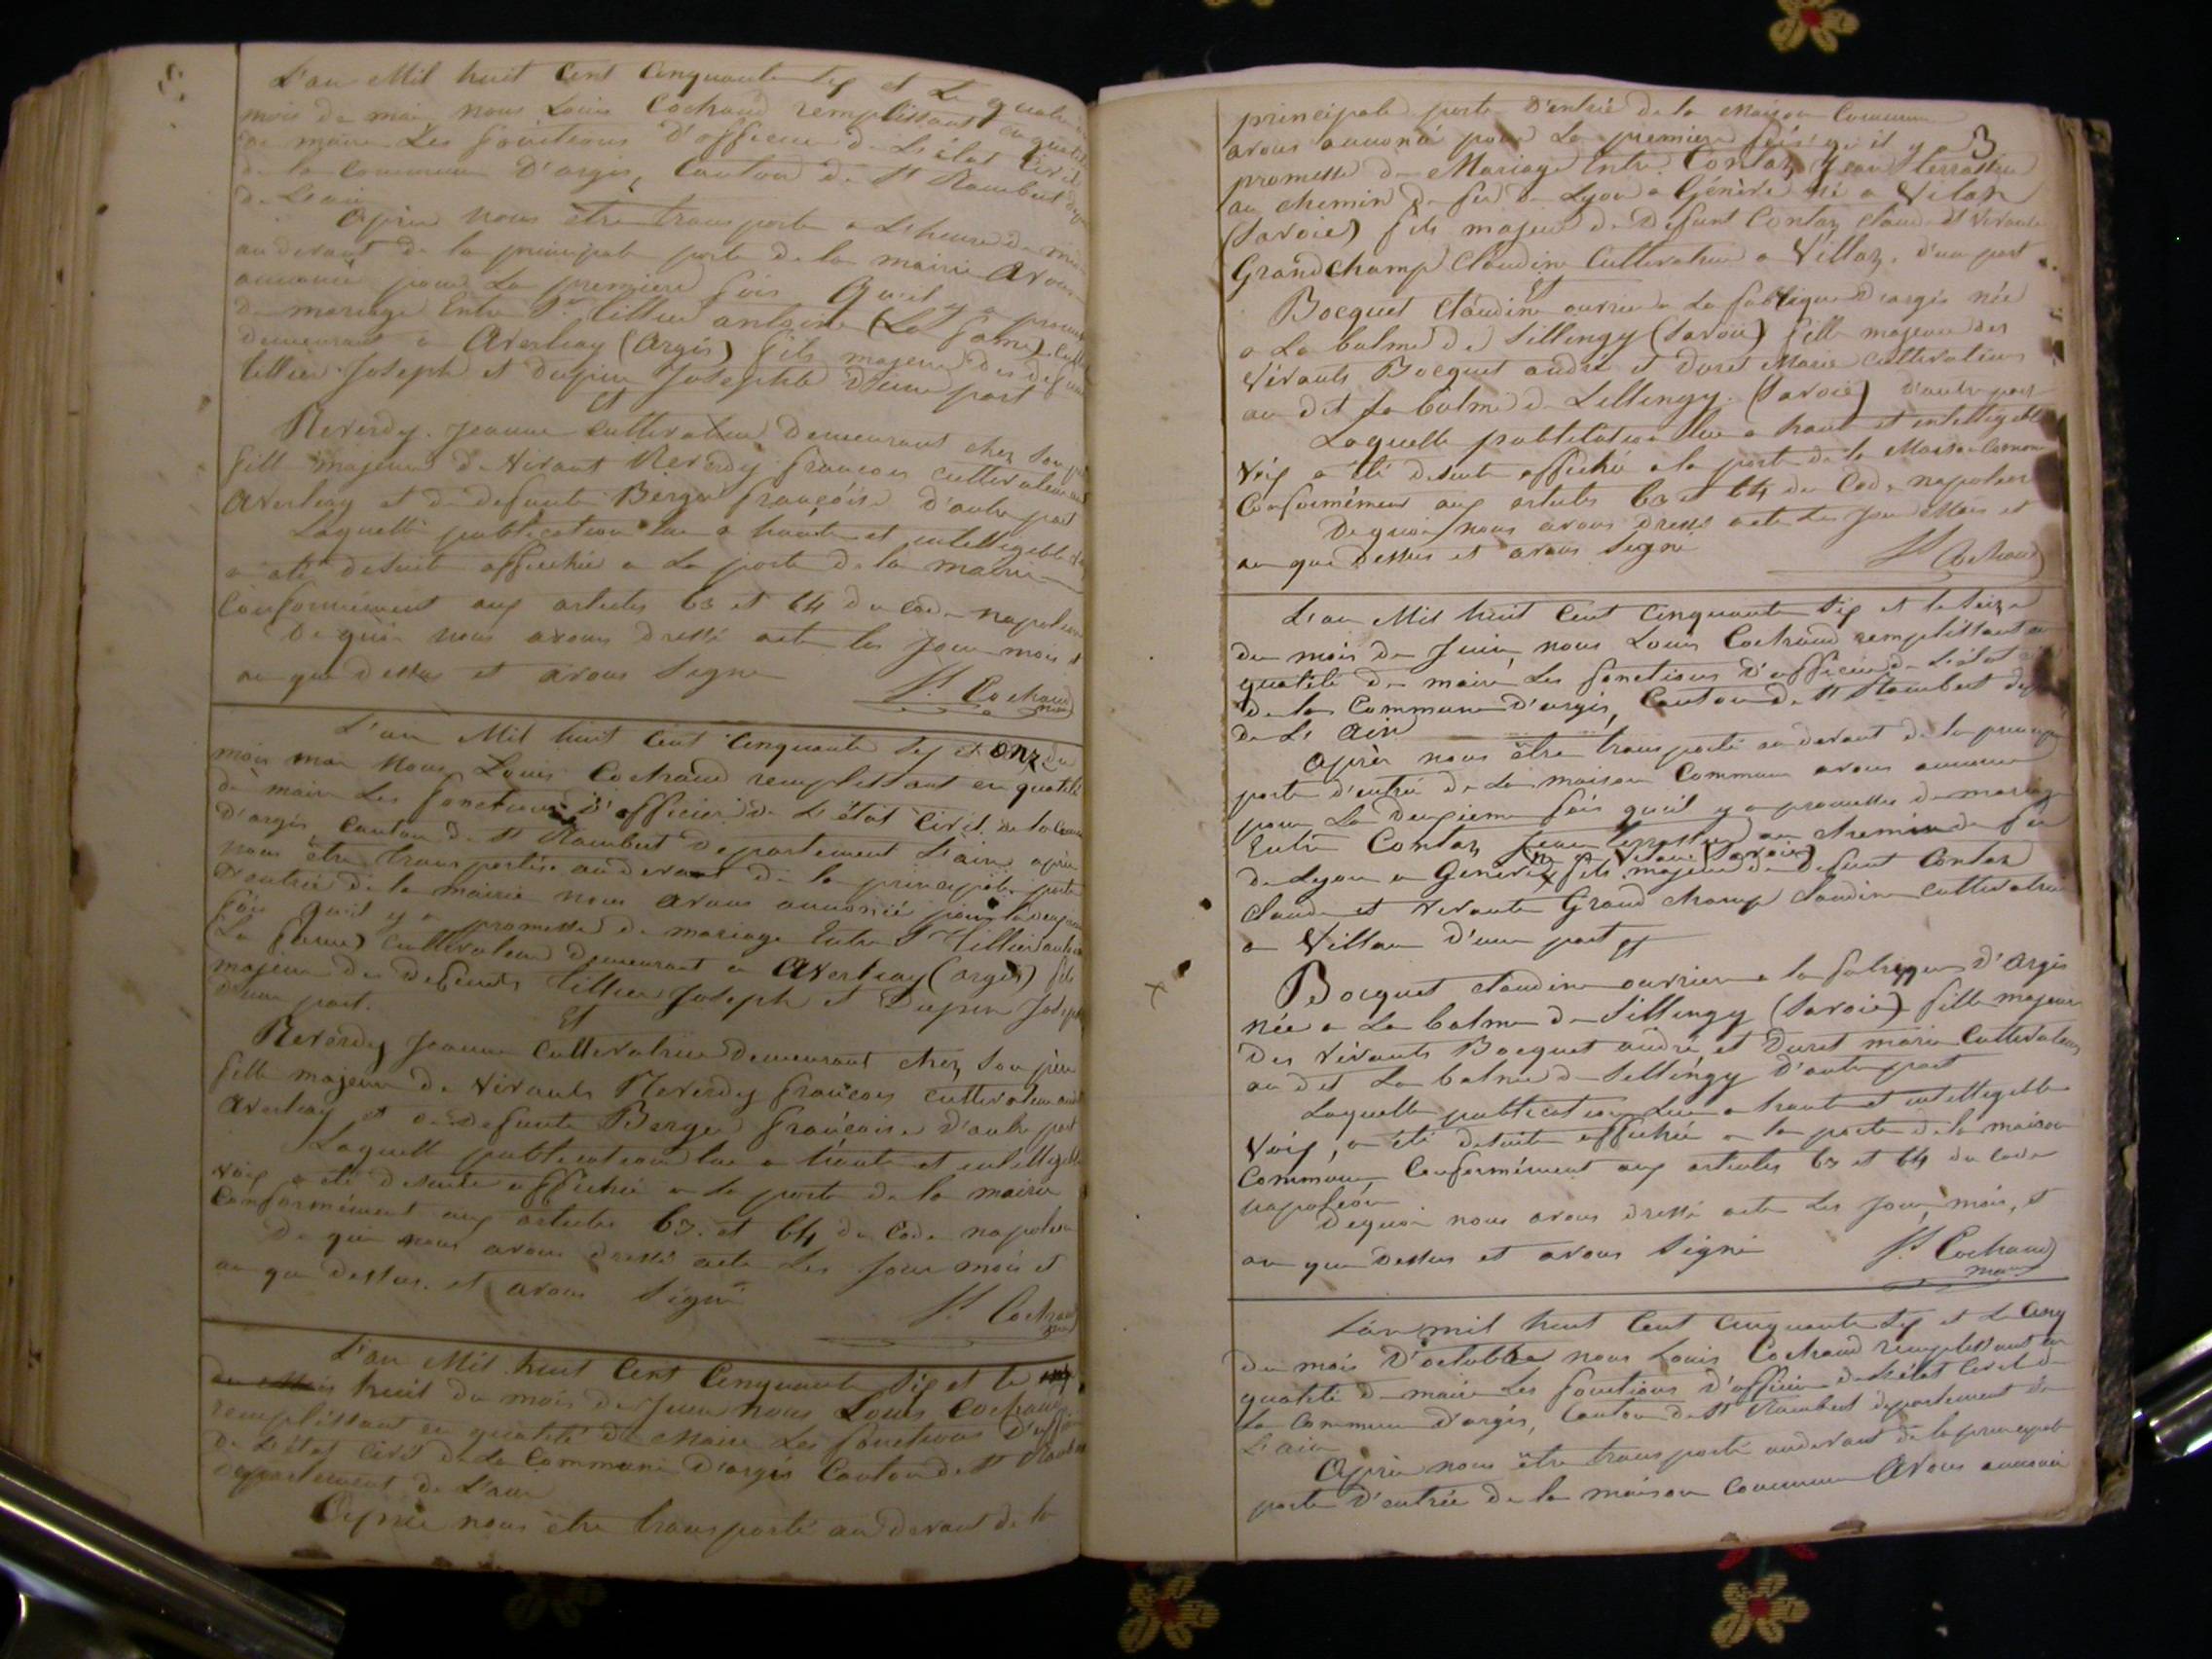 L'an Mil huit Cent Cinquante Six et Le quatre
mois de mai nous Louis Cochaud remplissant en qualité
de maire Les fonctions D'officier de L'état Civil
de la Commune D'argis, Canton de St Rambert
de L'ain
Après nous être transporté a L'heure de
au devant de la principale porte de la mairie Avons
annoncé pour La première fois Qu'il y a
de mariage Entre Sr Tillier antoine (La
demeurant a Averliay (Argis) fils majeur des
tillier Joseph et Dupin Josephte D'une part
Et
Reverdy Jeanne Cultivatrice Demeurant chez Son
fille majeure de Vivant Reverdy francois cultivateur
Averliay et de defunte Berger françoise D'autre part
Laquelle publication lue a haute et intelligible
a été desuite affichée a La porte de la mairie
Conformément aux articles 63 et 64 du code napoleon
De quoi nous avons dressé acte les jour mois et
an que dessus et avons Signe
Ls Cochaud
L'an Mil huit Cent Cinquante Six et onze du
mois mai Nous Louis Cochaud remplissant en qualité
de maire Les fonctions D'officier de L'état Civil de la
D'argis, canton de St Rambert Departement L'ain après
nous être transportés au devant de la principale porte
D'entrée de la mairie nous avons annoncé pour la deuxième
fois qu'il y a promesse de mariage Entre Sr Tillier antoine
(La cultivateur Demeurant a Averliay (argis) fils
majeur des Defunts tillier Joseph et Dupin
D'une part.
Et
Reverdy Jeanne Cultivatrice Demeurant chez Son père
fille majeure de Vivants Reverdy francois cultivateur
Averliay et de defunte Berger françoise D'autre part
Laquelle publication lue a haute et intelligible
voix a été desuite affichée a La porte de la mairie
Conformément aux articles 63 et 64 du Code napoleon
De quoi nous avons dressé acte Les Jour mois et
an que dessus et avons Signé
Ls Cochaud
L'an Mil huit Cent Cinquante Six et le
huit du mois de Juin nous Louis Cochaud
remplissant en qualité de Maire Les fonctions
de L'état Civil de La Commune D'argis Canton de St
departement de L'ain
Après nous être transporté au Devant de la
3
principale porte D'entrée de la Maison Commune
avons annoncé pour La premiere fois qu'il y a
promesse de Mariage Entre Contaz Jean terrassier
au chemin de fer de Lyon a Génève né a Vilaz
(Savoie) fils majeur de Defunt Contaz Claude et Vivante
Grandchamp Claudine Cultivatrice a Villaz. d'une part
Et
Bocquet Claudine ouvriere a La fabrique D'argis née
a La balme de Sillengy (Savoie) fille majeure des
Vivants Bocquet andré et Duret Marie cultivateurs
au dit La balme de Sillengy. (Savoie) D'autre part
Laquelle publication lue a haute et intelligible
Voix a été desuite affichée a la porte de la Maison
Conformément aux articles 63 et 64 du Code napoleon
De quoi nous avons dressé acte Les Jour Mois et
an que Dessus et avons Signé
Ls Cochaud
L'an Mil huit Cent Cinquante Six et le Seize
du mois de Juin, nous Louis Cochaud remplissant en
qualité de maire Les fonctions D'officier de L'état
de la Commune D'argis, Canton de St Rambert
de L'Ain
Après nous être transporté au devant de la
porte d'entrée de La maison Commune avons annoncé
pour La deuxieme fois qu'il y a promesse de mariage
Entre Contaz Jean terrassier au chemin de fer
né a Vilaz (Savoie)
de Lyon a Genève fils majeur de Defunt Contaz
Claude et Vivante Grand champ Claudine cultivatrice
a Villaz D'une part et
Bocquet claudine ouvriere a la fabrique D'Argis
née a La balme de Sillengy (Savoie) fille majeure
Des Vivants Bocquet andré et Duret marie Cultivateurs
au dit La balme de Sillengy D'autre part
Laquelle publication Lue a haute et intelligible
Voix, a été desuite affichée a la porte de la maison
Commune, Conformément aux articles 63 et 64 du Code
napoléon
De quoi nous avons dressé acte Les Jour, mois, et
an que Dessus et avons Signé
Ls Cochaud
maire
L'an mil huit Cent Cinquante Six et Le Cinq
du mois D'octobre nous Louis Cochaud remplissant en
qualité de maire Les fonctions D'officier de L'état Civil de
La Commune D'argis, Canton de St Rambert departement de
L'ain
Après nous être transporté au devant de la principale
porte D'entrée de la maison commune Avons annoncé